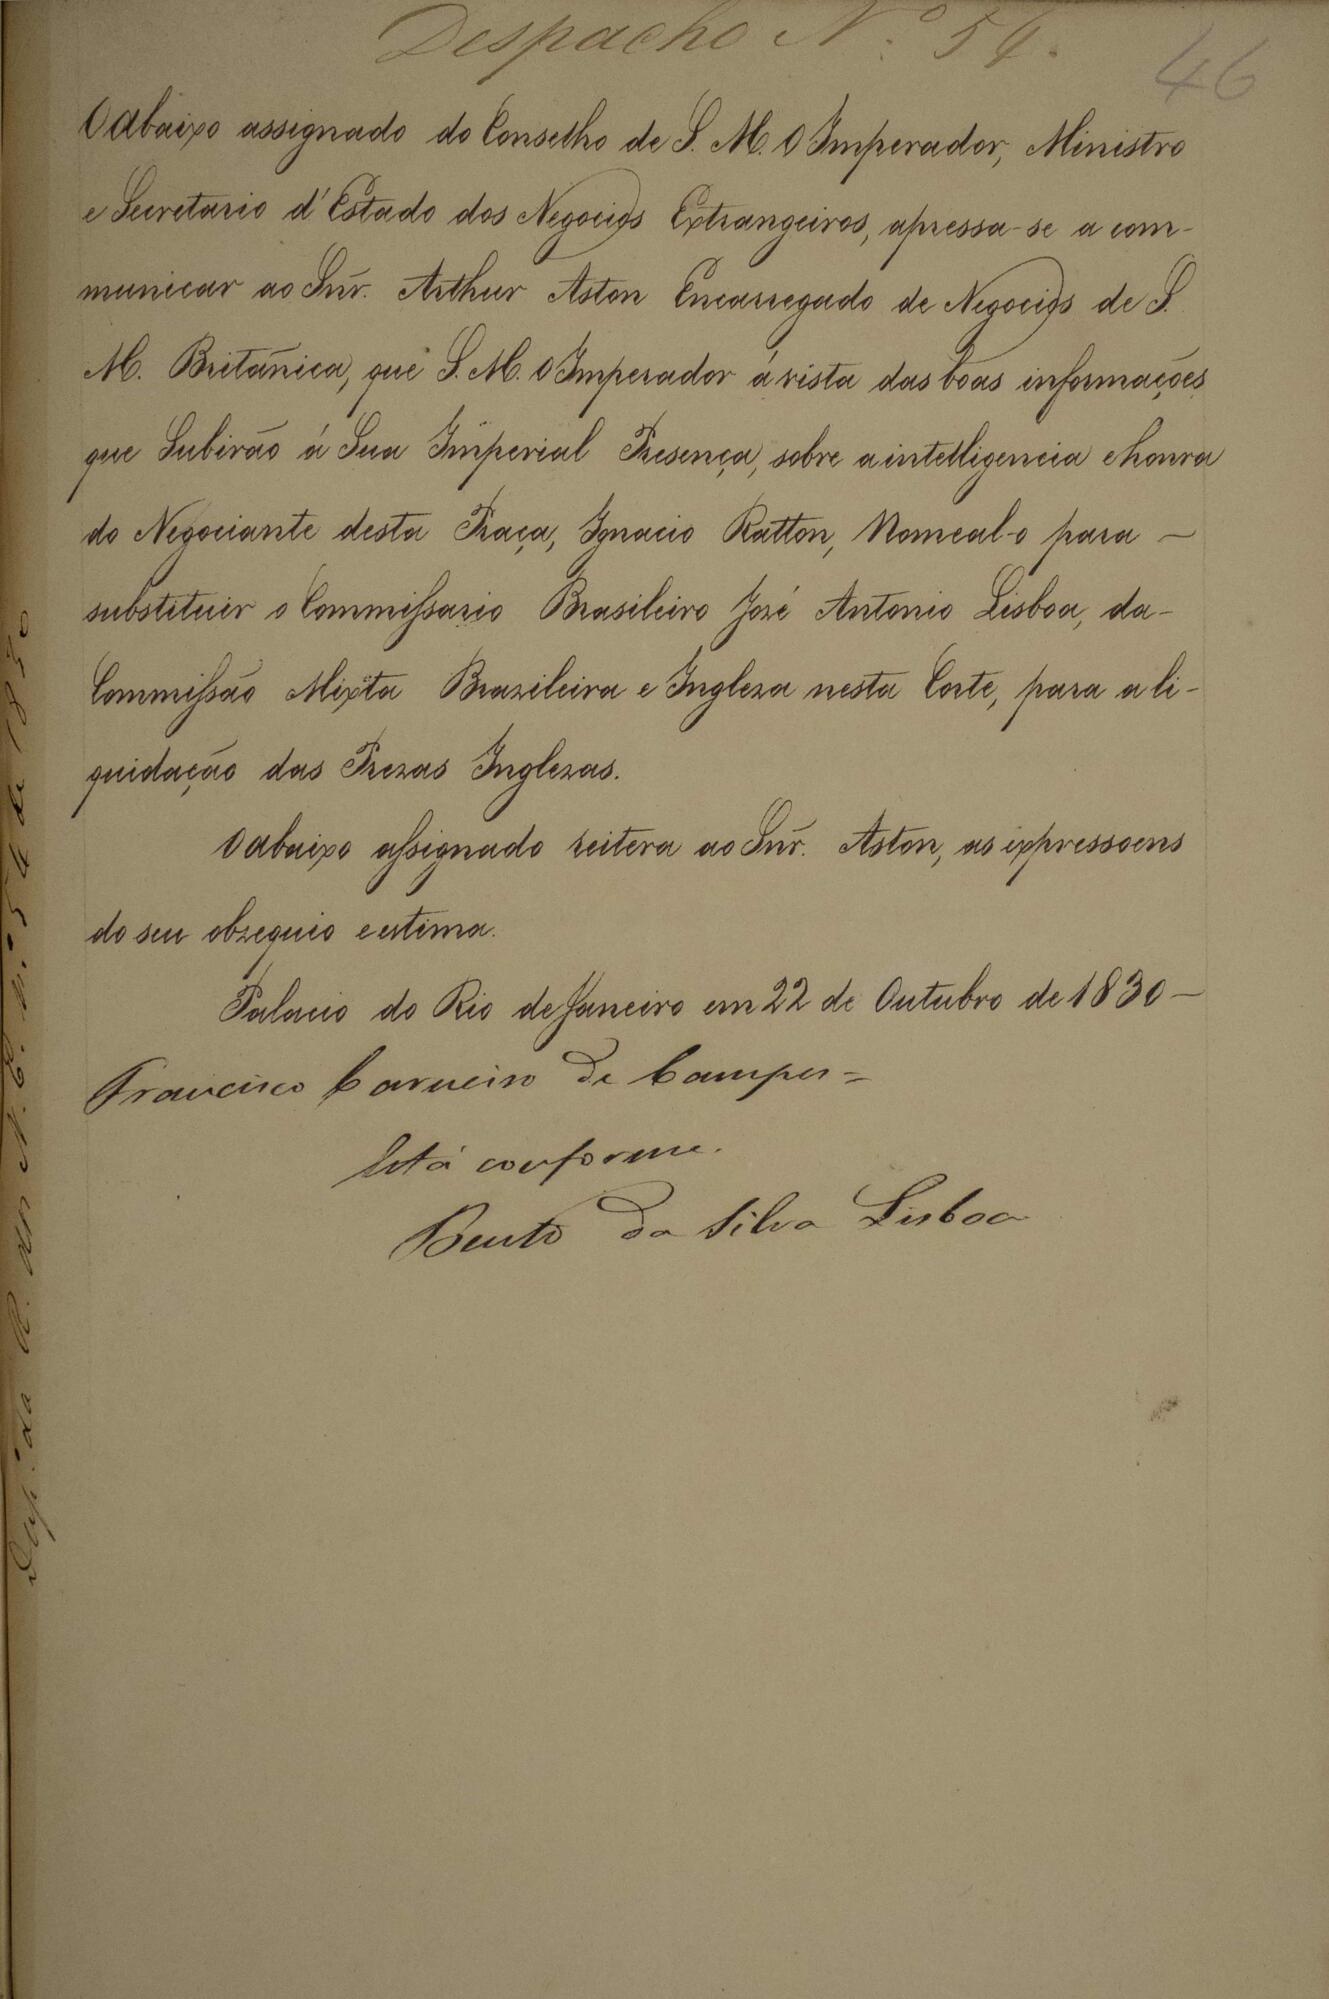 Despacho N.o 54.
46
O abaixo assignado do Conselho de S. M. O Imperador, Ministro
e Secretario d'Estado dos Negocios Extrangeiros, apressa-se a com-
municar ao Snr. Arthur Aston Encarregado de Negocios de S.
M. Britanica, que S. M. O Imperador á vista das boas informações
que Subirão á Sua Imperial Presença, sobre a intelligencia e honra
do Negociante desta Praça, Ignacio Ratton, Nomeal-o para —
substituir o Commissario Brasileiro José Antonio Lisboa, da -
Commissão Mixta Brazileira e Ingleza nesta Corte, para a li-
quidação das Prezas Inglezas.
O abaixo assignado reitera ao Snr. Aston, as expressoens
do seu obzequio e estima.
Palacio do Rio de Janeiro em 22 de Outubro de 1830 —
Francisco Carneiro de Campos =
Está conforme.
Bento da Silva Lisboa
Desp. da R. dos N. E. n.o 54 de 1830